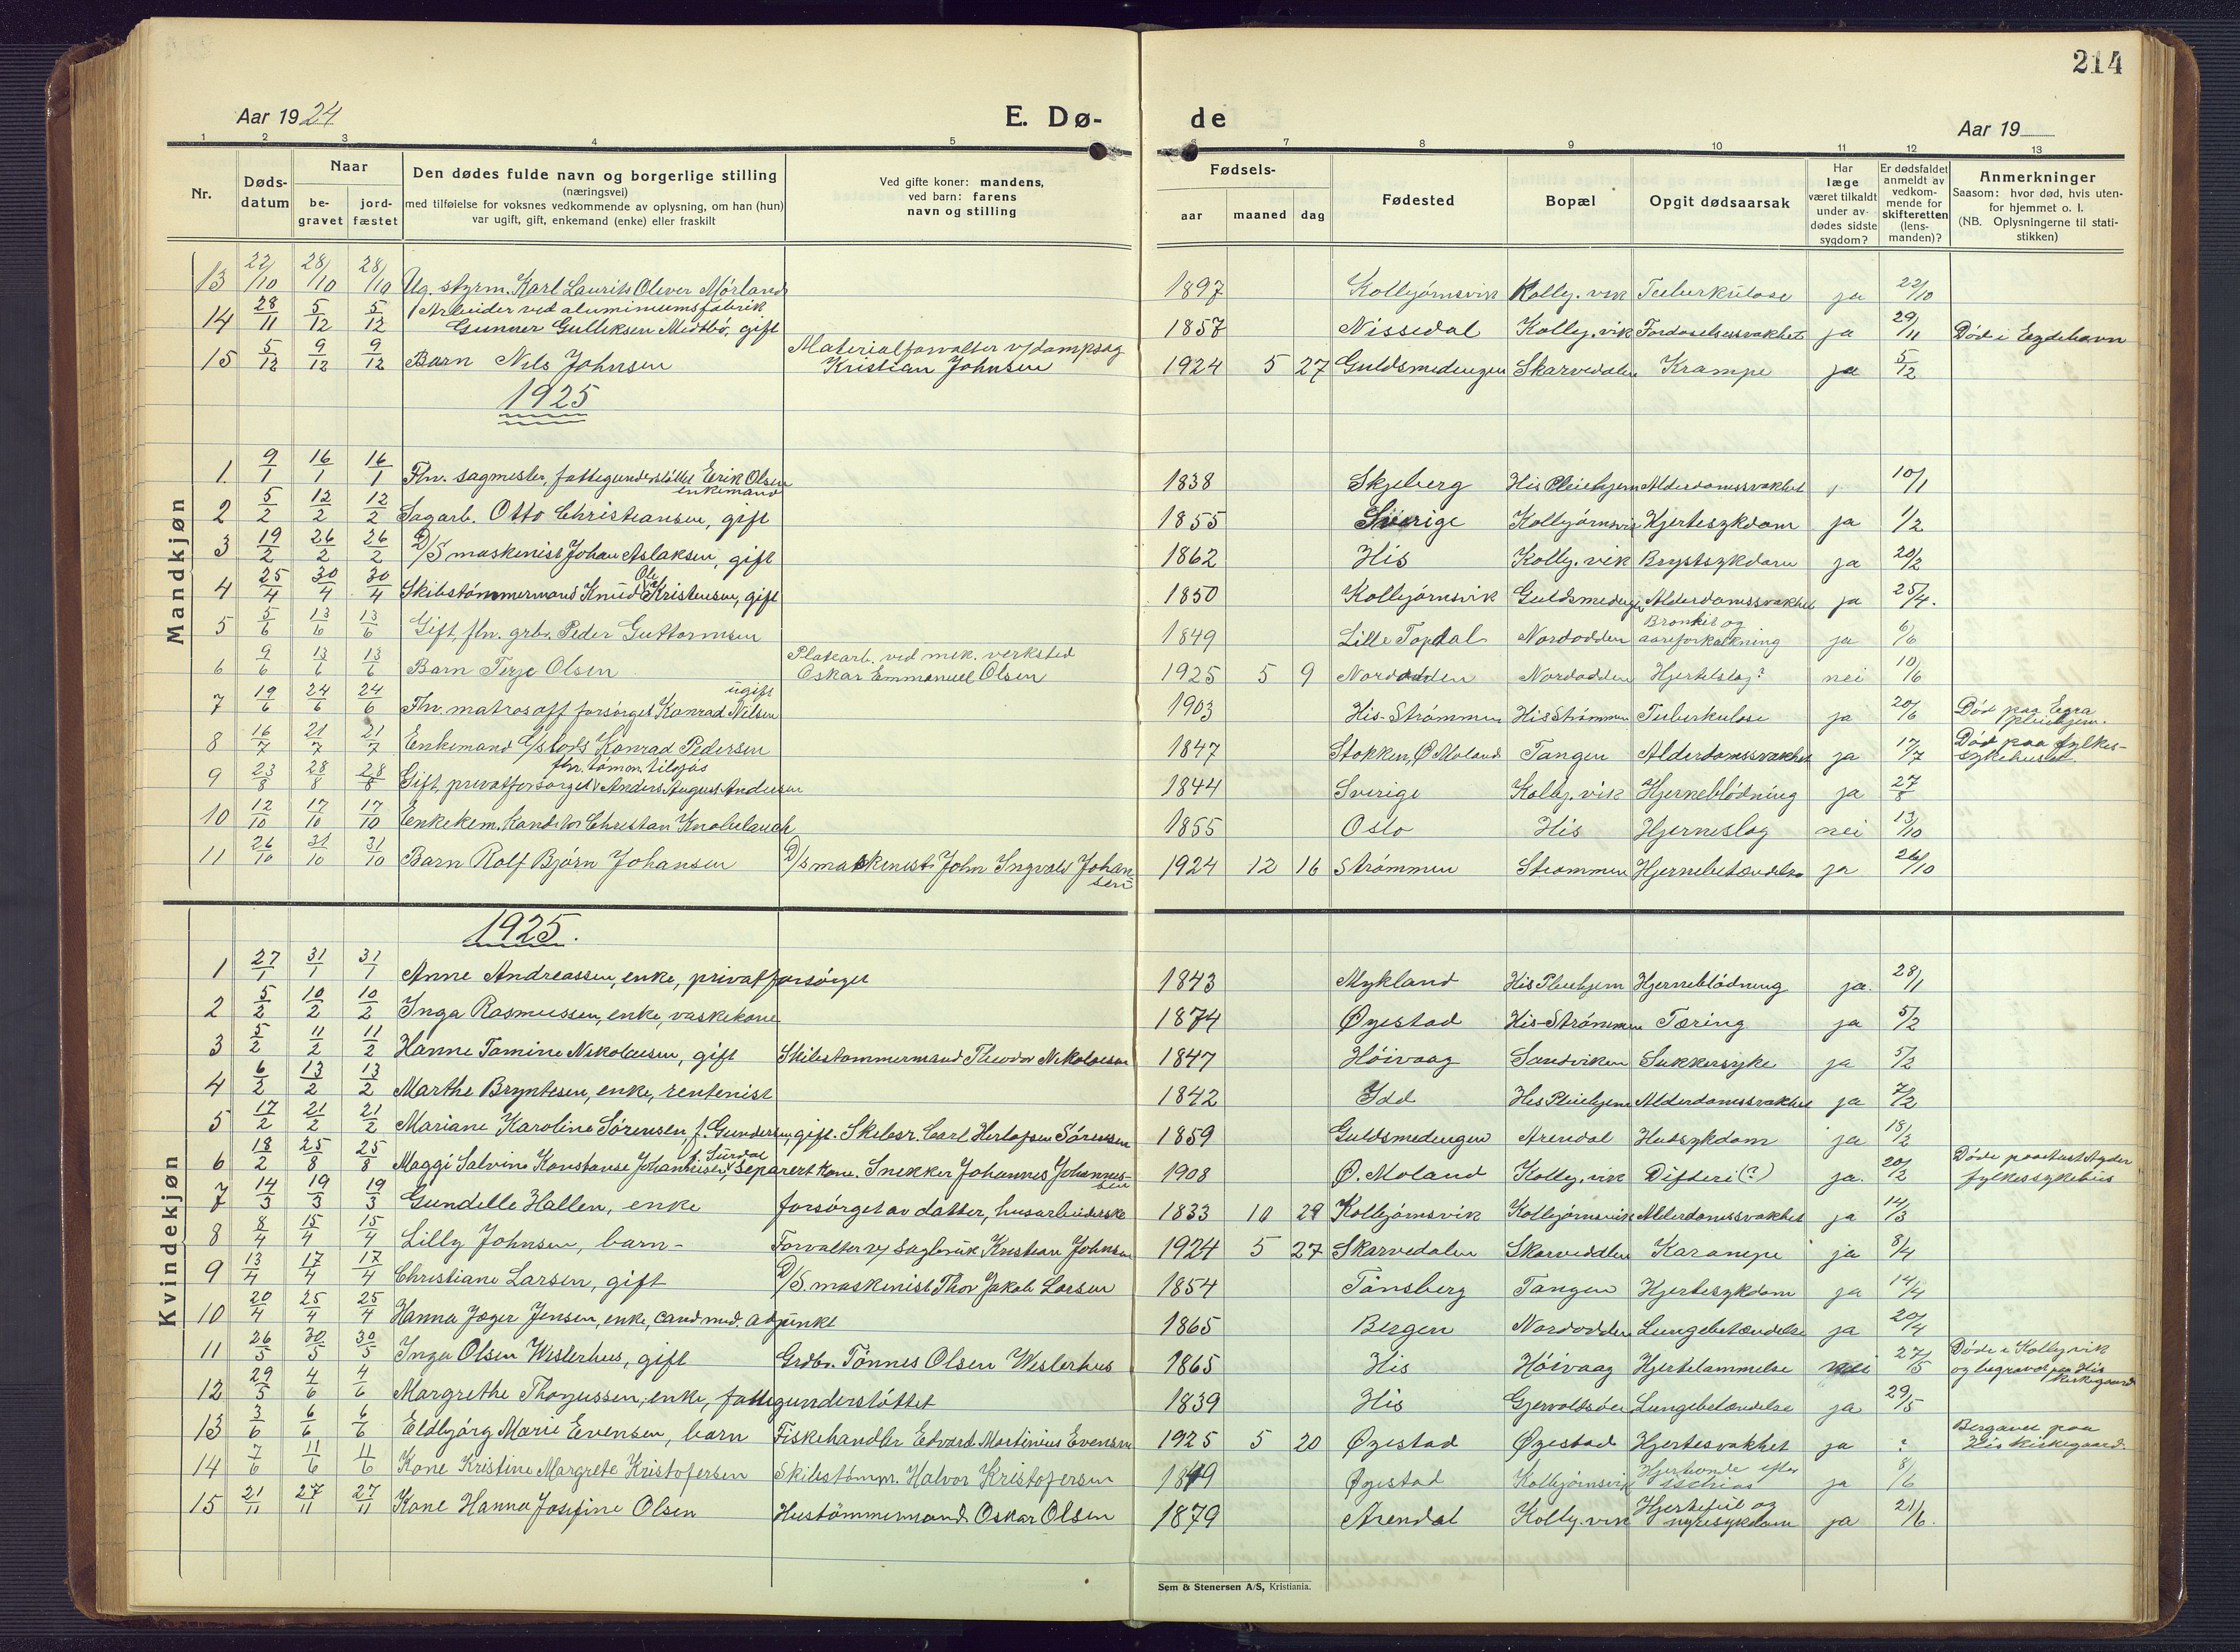 214
Aar 1924
E. Dø-
de
Aar 19
1 2 3 4 5 6 7 8 9 10 11 12 13
Nr. Døds-datum Naar be-gravet jord-fæstet Den dødes fulde navn og borgerlige stilling (næringsvei) med tilføielse for voksnes vedkommende av oplysning, om han (hun) var ugift, gift, enkemand (enke) eller fraskilt Ved gifte koner: mandens, ved barn: farens navn og stilling Fødsels- aar maaned dag Fødested Bopæl Opgit dødsaarsak Har læge været tilkaldt under av-dødes sidste sygdom? Er dødsfaldet anmeldt av vedkom-mende for skifteretten (lens-manden)? Anmerkninger Saasom: hvor død, hvis uten-for hjemmet o. l. (NB. Oplysningerne til stati-stikken)
Mandkjøn
13 22/10 28/10 28/10 Ug. styrm. Karl Laurits Oliver Mørland 1897 Kolbjørnsvik Kolbj. vik Tuberkulose ja 22/10
14 28/11 5/12 5/12 Arbeider ved aluminiumsfabrik Gunner Gulliksen Midtbö, gift 1857 Nissedal Kolbj. vik Fordøielsessvakhet ja 29/11 Død i Eydehavn
15 5/12 9/12 9/12 Barn Nils Johnsen Materialforvalter v/dampsag Kristian Johnsen 1924 5 27 Guldsmedengen Skarvedalen Krampe ja 5/12
1925
1. 9/1 16/1 16/1 Fhv. sagmester, fattigunderstøttet Erik Olsen enkemand 1838 Skjeberg His Pleiehjem Alderdomssvakhet 10/1
2 5/2 12/2 12/2 Sagarb. Otto Christiansen, gift 1855 Sverige Kolbjørnsvik Hjertesykdom ja 1/2
3 19/2 26/2 26/2 D/S maskinist Johan Aslaksen, gift 1862 His Kolbj. vik Brystsykdom ja 20/2
4 25/4 30/4 30/4 Skibstømmermand Knud Ole Kristensen, gift 1850 Kolbjørnsvik Guldsmedengen Alderdomssvakhet ja 25/4.
5 5/6 13/6 13/6 Gift, fhv. grb. Peder Guttormsen 1849 Lille Topdal Nordodden Bronkit og aareforkalkning ja 6/6
6 9/6 13/6 13/6 Barn Terje Olsen Platearb. ved mek. verksted Oskar Emmanuel Olsen 1925 5 9 Nordodden Nordodden Hjerteslag? nei 10/6
7 19/6 24/6 24/6 Fhv. matros off. forsørget Konrad Nilsen ugift 1903 His-Strømmen His Strømmen Tuberkulose ja 20/6 Død paa Egra pleiehjem.
8 16/7 21/7 21/7 Enkemand Konrad Pedersen 1847 Stokken, Ø. Moland Tangen Alderdomssvakhet ja 17/7 Død paa fylkes-sykehuset
9 23/8 28/8 28/8 Gift, privatforsørget fhv. tømm. tilsjøs Anders August Andersen 1844 Sverige Kolbj. vik Hjerneblödning ja 27/8
10 12/10 17/10 17/10 Enkekem. Kanditor Christian Knobelauch 1855 Oslo His Hjerneslag nei 13/10
11 26/10 31/10 31/10 Barn Rolf Bjørn Johansen D/s maskinist John Ingvald Johansen 1924 12 16 Strømmen Strømmen Hjernebetændelse ja 26/10
Kvindekjøn
1925.
1 27/1 31/1 31/1 Anne Andreassen, enke, privatforsørget 1843 Mykland His Pleiehjem Hjerneblödning ja. 28/1
2 5/2 10/2 10/2 Inga Rasmussen, enke, vaskekone 1874 Øyestad His-Strømmen Tæring ja 5/2
3 5/2 11/2 11/2 Hanne Tomine Nikolaisen, gift Skibstømmermand Theodor Nikolaisen 1847 Höivaag Sandviken Sukkersyke ja 5/2
4 6/2 13/2 13/2 Marthe Bryntesen, enke, rentenist 1842 Idd His Pleiehjem Alderdomssvakhet ja 7/2
5 17/2 21/2 21/2 Mariane Karoline Sørensen, f. Gundersen, gift. Skibsr. Carl Herlofsen Sørensen 1859 Guldsmedengen Arendal Hudsykdom ja 18/2
6 18/2 25/8 25/8 Maggi Salvine Konstanse Johannesen, f. Sürdal separert kone. Snekker Johannes Johannessen 1908 Ø. Moland Kolbj. vik Difteri (?) ja. 20/2 Døde paa Aust Agder fylkessykehus
7 14/3 19/3 19/3 Gundelle Hallen, enke forsørget av datter, husarbeiderske 1833 10 29 Kolbjørnsvik Kolbjørnsvik Alderdomssvakhet ja 14/3
8 8/4 15/4 15/4 Lilly Johnsen, barn- Forvalter v/ sagbruk Kristian Johnsen 1924 5 27 Skarvedalen Skarvedalen Karampe ja 8/4
9 13/4 17/4 17/4 Christiane Larsen, gift D/S. maskinist Thor Jakob Larsen 1854 Tønsberg Tangen Hjertesykdom ja 14/4
10 20/4 25/4 25/4 Hanna Jæger Jensen, enke, cand med. adjunkt 1865 Bergen Nordodden Lungebetændelse ja 20/4
11 26/5 30/5 30/5 Inga Olsen Westerhus, gift Grdbr. Tönnes Olsen Westerhus 1865 His Höivaag Hjertelammelse nei 27/5 Døde i Kolbj.vik og begravet paa His kirkegaard
12 29/5 4/6 4/6 Margrethe Thogussen, enke, fattigunderstøttet 1839 His Gjervoldsøen Lungebetændelse ja 29/5
13 3/6 6/6 6/6 Eldbjørg Marie Evensen, barn Fiskehandler Edvard Martinius Evensen 1925 5 20 Øyestad Øyestad Hjertesvakhet ja ? Bergavet paa His kirkegaard.
14 7/6 11/6 11/6 Kone Kristine Margrete Kristofersen Skibstømm. Halvor Kristofersen 1849 Øyestad Kolbjørnsvik Hjerteonde efter ischias ja 8/6
15 21/11 27/11 27/11 Kone Hanna Josefine Olsen Hustömmermand Oskar Olsen 1879 Arendal Kolbj. vik Hjertefeil og nyresykdom ja 21/6.
Sem & Stenersen A/S, Kristiania.